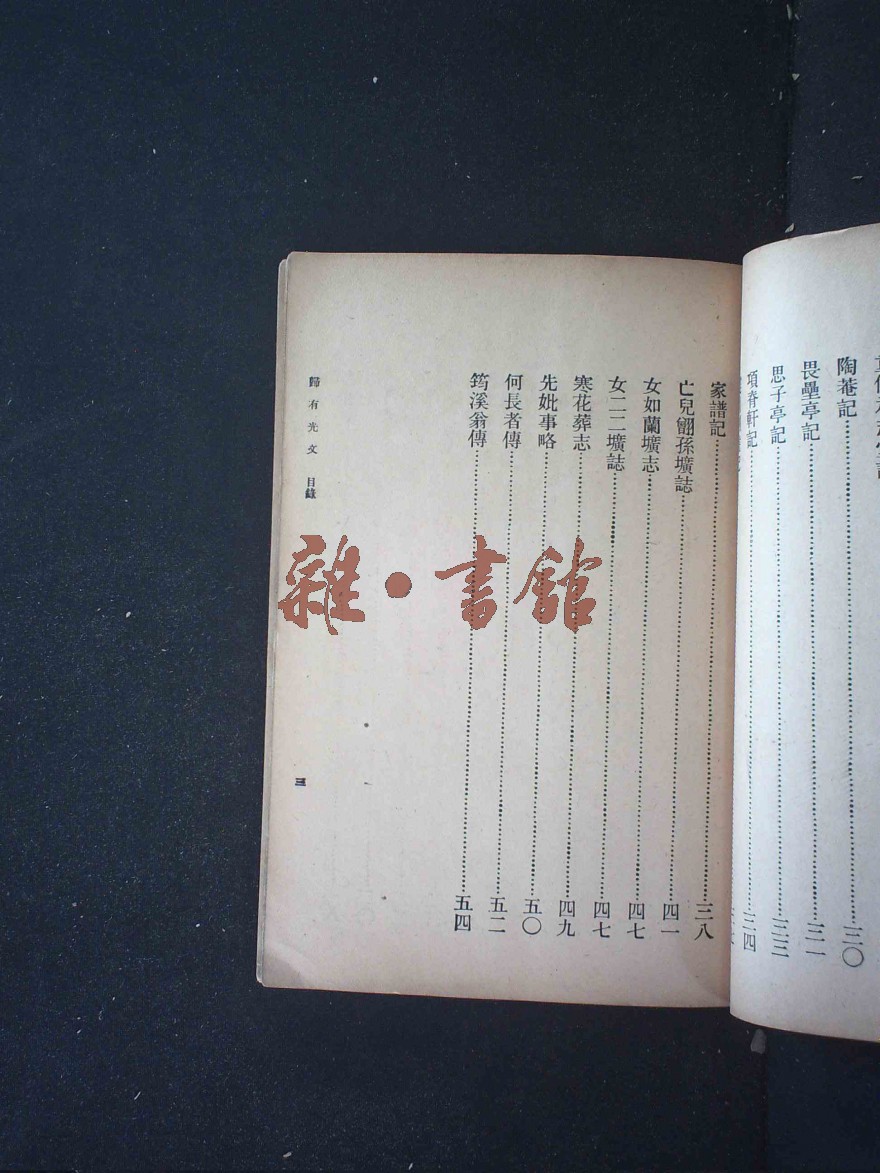 陶菴記……三〇
畏壘亭記……三一
思子亭記……三三
項脊軒記……三四
家譜記……三八
亡兒䎖孫壙誌……四一
女如蘭壙志……四七
女二二壙誌……四七
寒花葬志……四九
先妣事略……五〇
何長者傳……五二
筠溪翁傳……五四
歸有光文 目錄
三
雜·書館